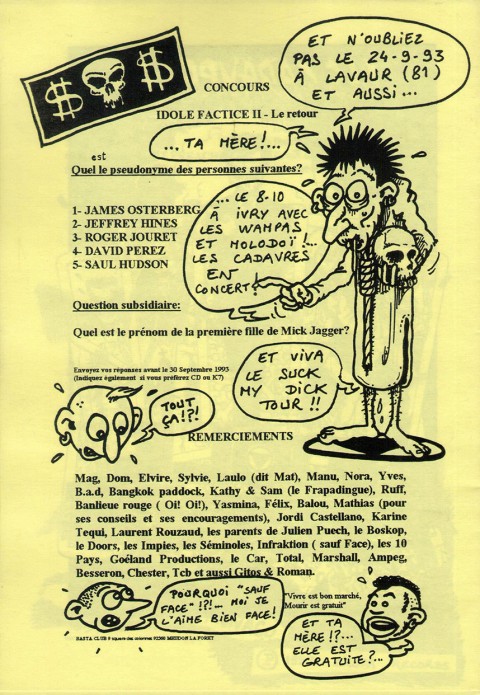 ET N'OUBLIEZ
PAS LE 24-9-93
À LAVAUR (81)
ET AUSSI...
$ $
CONCOURS
IDOLE FACTICE II - Le retour
... TA MÈRE !...
est
Quel le pseudonyme des personnes suivantes?
... LE 8-10
À IVRY AVEC
LES WAMPAS
ET MOLODOÏ !...
LES CADAVRES
EN
CONCERT !
1- JAMES OSTERBERG
2- JEFFREY HINES
3- ROGER JOURET
4- DAVID PEREZ
5- SAUL HUDSON
Question subsidiaire:
Quel est le prénom de la première fille de Mick Jagger?
ET VIVA
LE SUCK
MY DICK
TOUR !!
Envoyez vos réponses avant le 30 Septembre 1993
(Indiquez également si vous préférez CD ou K7)
TOUT
ÇA !?!
REMERCIEMENTS
Mag, Dom, Elvire, Sylvie, Laulo (dit Mat), Manu, Nora, Yves,
B.a.d, Bangkok paddock, Kathy & Sam (le Frapadingue), Ruff,
Banlieue rouge ( Oi! Oi!), Yasmina, Félix, Balou, Mathias (pour
ses conseils et ses encouragements), Jordi Castellano, Karine
Tequi, Laurent Rouzaud, les parents de Julien Puech, le Boskop,
le Doors, les Impies, les Séminoles, Infraktion ( sauf Face), les 10
Pays, Goéland Productions, le Car, Total, Marshall, Ampeg,
Besseron, Chester, Tcb et aussi Gitos & Roman.
POURQUOI "SAUF
FACE" !?!... MOI JE
L'AIME BIEN FACE !
"Vivre est bon marché,
Mourir est gratuit"
ET TA
MÈRE !?...
ELLE EST
GRATUITE ?...